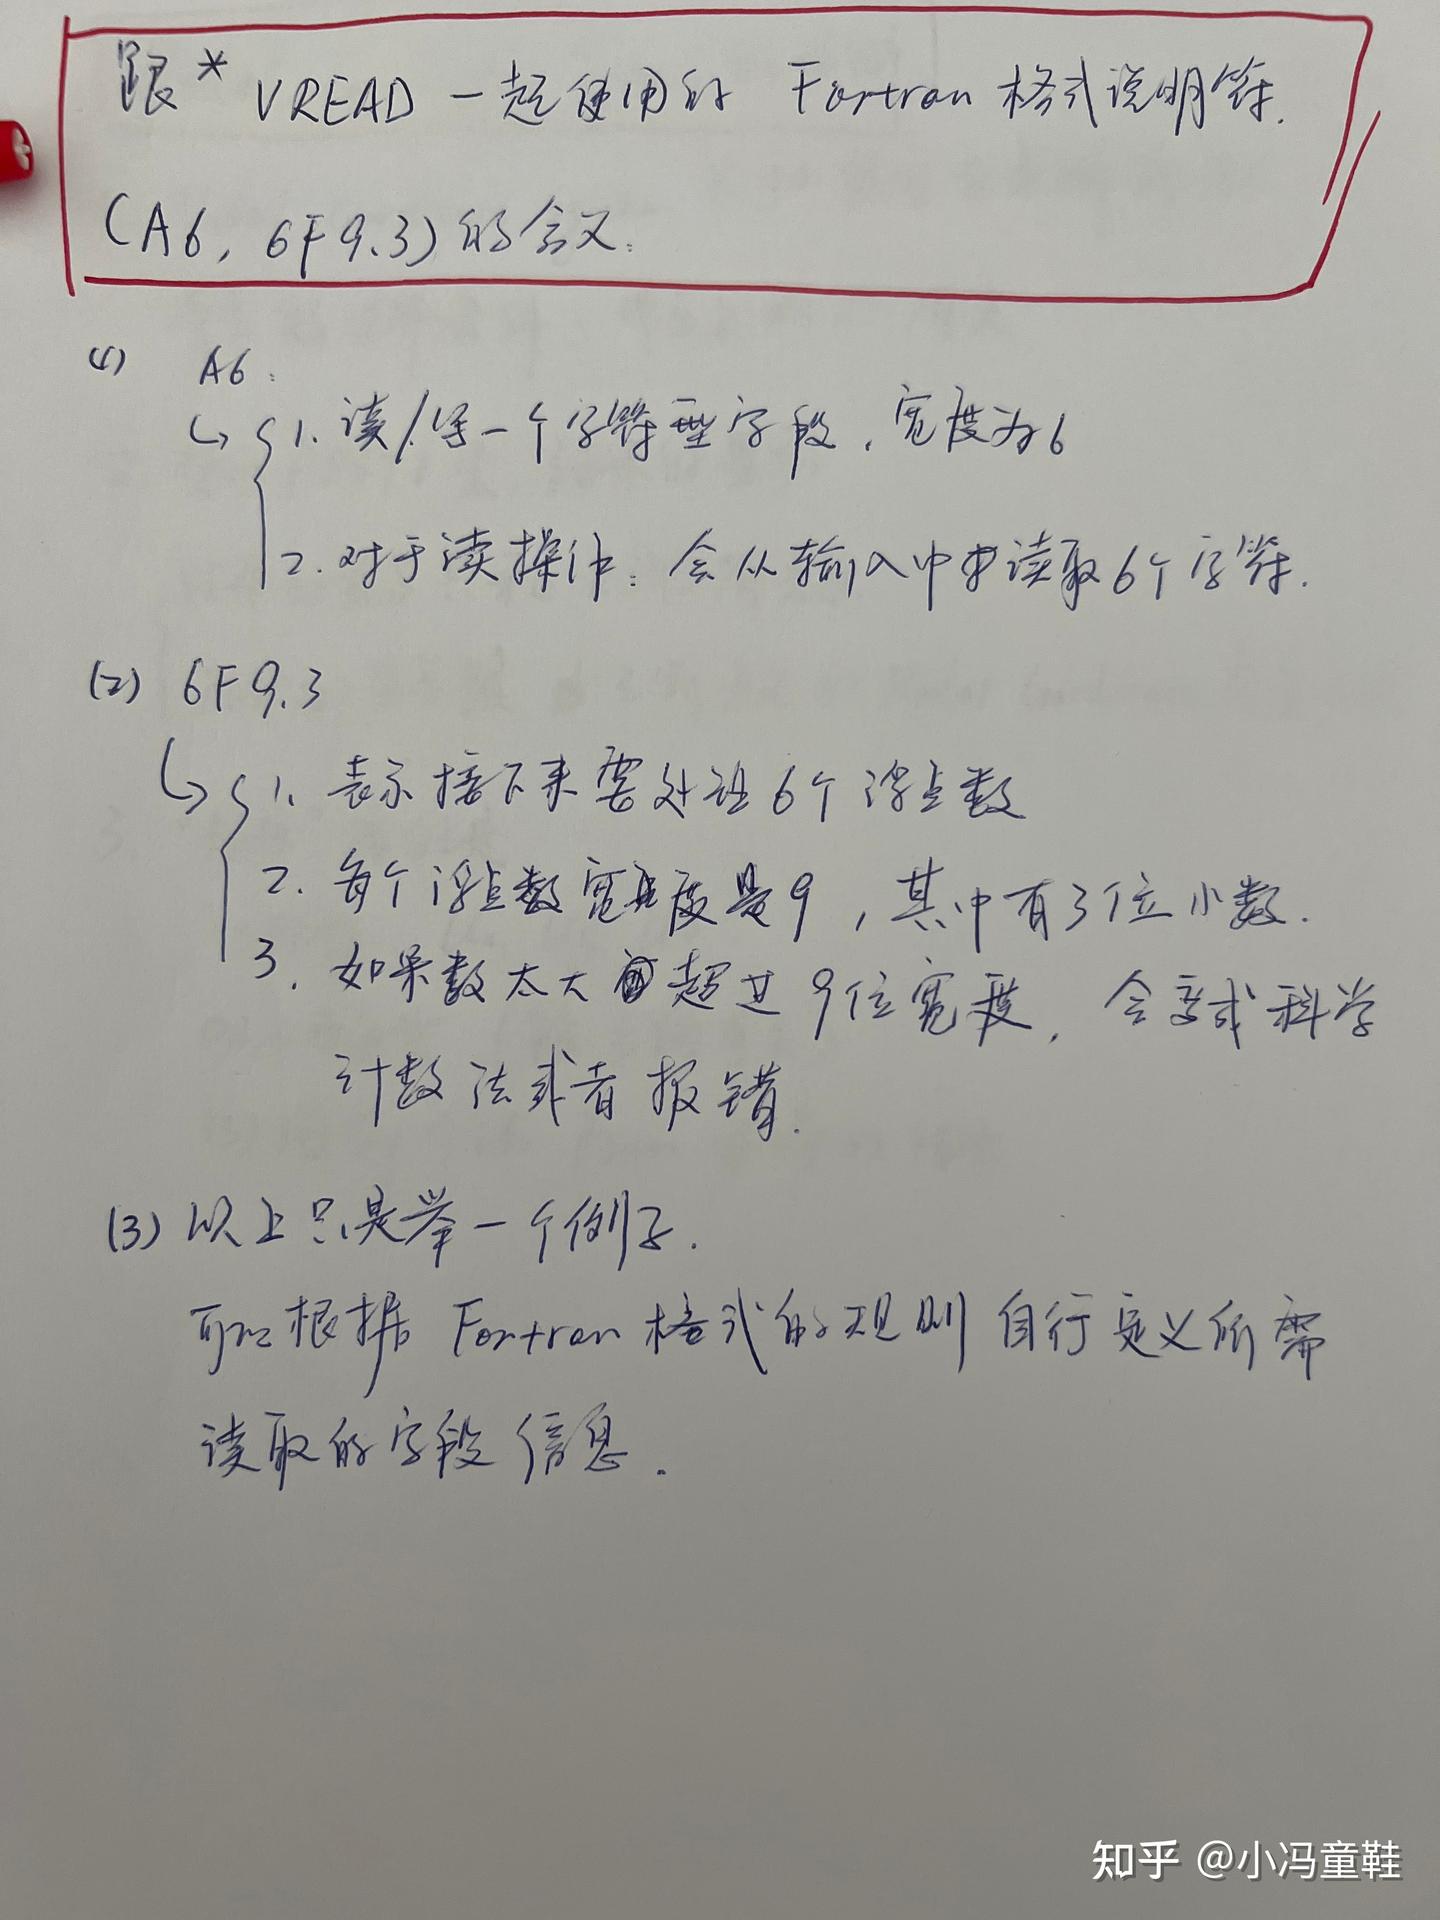 跟*VREAD一起使用的 Fortran 格式说明符.
(A6, 6F9.3)的含义:
(1) A6:
1. 读/写一个字符型字段,宽度为6
2. 对于读操作:会从输入中读取6个字符.
(2) 6F9.3
1. 表示接下来要处理6个浮点数
2. 每个浮点数宽度是9,其中有3位小数.
3. 如果数太大超过9位宽度,会变成科学
计数法或者报错.
(3) 以上只是举一个例子.
可以根据 Fortran 格式的规则自行定义所需
读取的字段信息.
知乎 @小冯童鞋